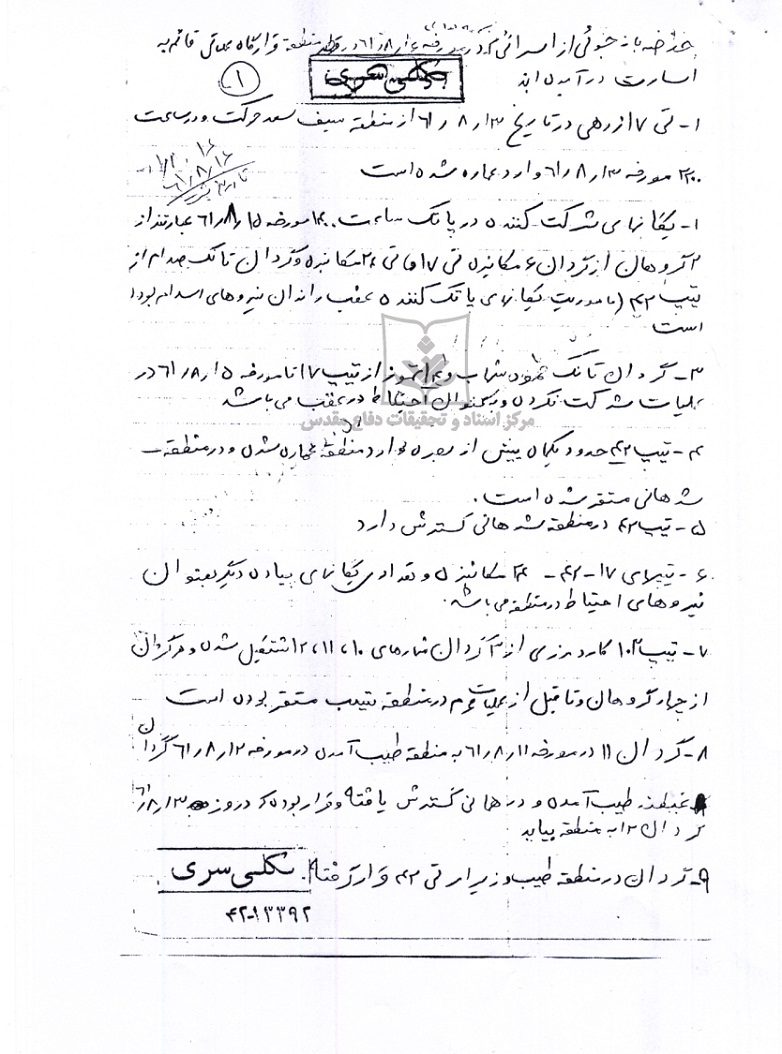 خلاصه بازجوئی از اسرائی که در مورخه ۶۱/۸/۱۴ در منطقه قرارگاه عملیاتی قائم به
اسارت در آمده اند
بکلی سری
۱
۱- تی ۱۷ زرهی در تاریخ ۶۱/۸/۱۳ از منطقه سیف سعد حرکت و در ساعت
۲۲۰۰ مورخه ۶۱/۸/۱۳ وارد عماره شده است
۶۱/۸/۱۶
۱- یگانهای شرکت کننده در پاتک ساعت مورخه ۶۱/۸/۱۵ عبارتند از
۲ گروهان از گردان ۶ مکانیزه تی ۱۷ و تی ۲۴ مکانیزه و گردان تانک صدام از
تیپ ۴۲ (ماموریت یگانهای پاتک کننده عقب راندن نیروهای اسلام بوده
است
۳- گردان تانک شهاب و تموز از تیپ ۱۷) تا مورخه ۶۱/۸/۱۵ در
عملیات شرکت نکرده و بعنوان احتیاط در عقب می باشد
مرکز اسناد و تحقیقات دفاع مقدس
۴- تیپ ۴۲ حدود یکماه پیش از بصره وارد منطقه عماره شده و در منطقه
شرهانی مستقر شده است.
۵- تیپ ۴۲ در منطقه شرهانی گسترش دارد
۶- تیپهای ۱۷-۴۲-۲۴ مکانیزه و تعدادی یگانهای پیاده دیگر بعنوان
نیروهای احتیاط در منطقه می باشد.
۷- تیپ ۱۰۲ گارد مرزی از ۳ گردان شمارهای ۱۰، ۱۱، ۱۲ تشکیل شده و هر گردان
از چهار گروهان و تا قبل از عملیات محرم در منطقه مستقر بوده است
۸- گردان ۱۱ در مورخه ۶۱/۸/۱۱ به منطقه طیب آمده در مورخه ۶۱/۸/۱۲ گردان
طیب آمده و در همانی گسترش یافته و قرار بوده که در روز ۶۱/۸/۱۳
گردان ۱۲ به منطقه بیاید
۹- گردان در منطقه طیب و زیر امر تی ۴۲ قرار گرفته.
بکلی سری
۴۲-۱۳۳۹۲